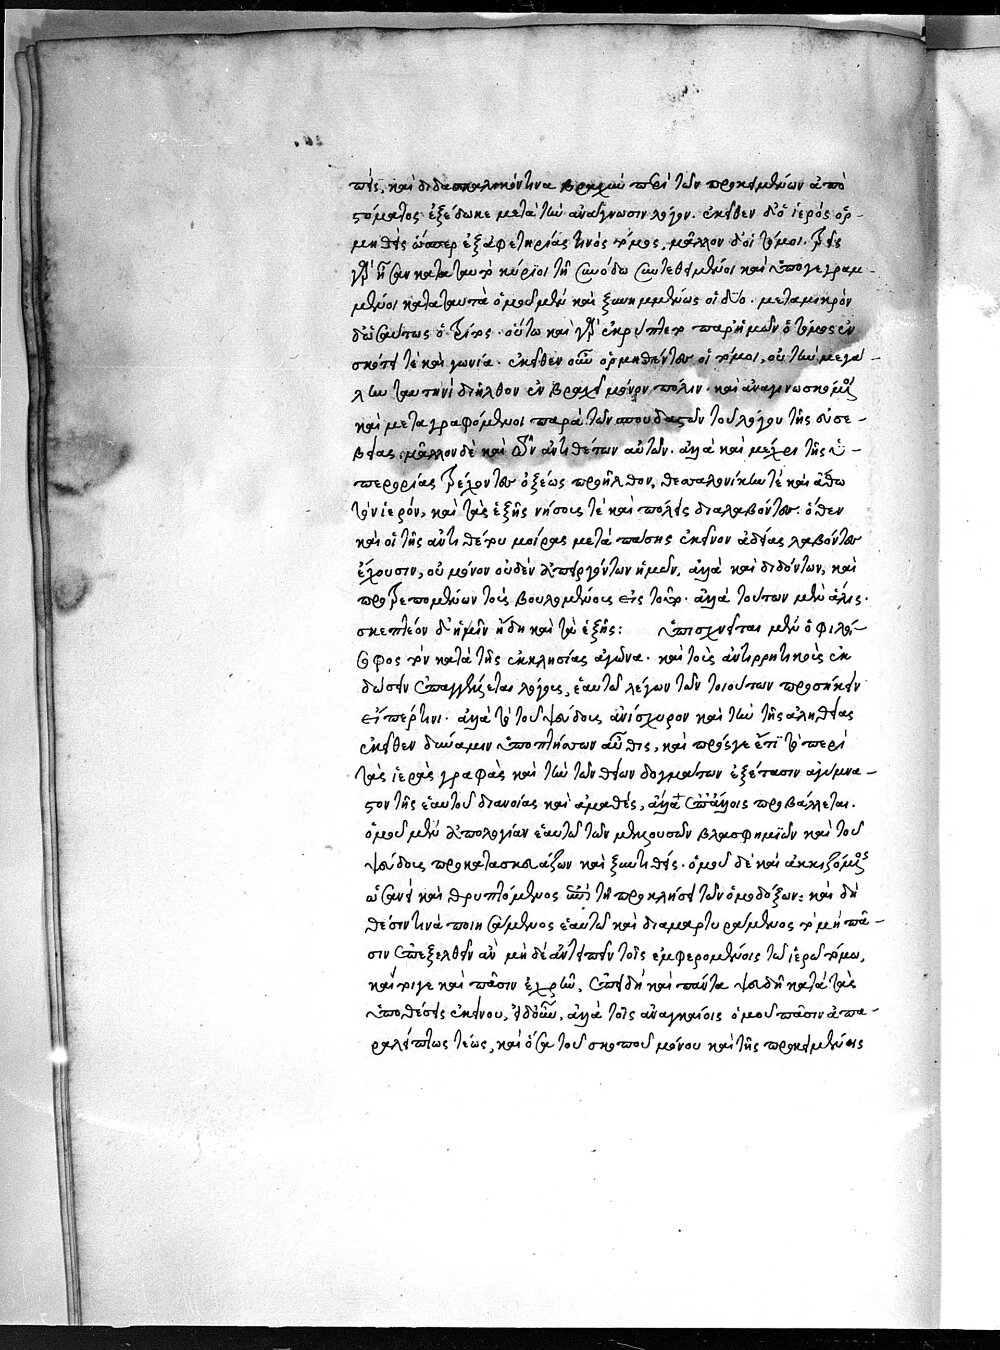 πεῖς, καὶ διδασκαλικόν τινα βραχὺ περὶ τῶν προκειμένων ἀπὸ
στόματος ἐξέδωκε μετὰ τὴν ἀνάγνωσιν λόγον. ἐκεῖθεν δ' ὁ ἱερὸς ὁρ-
μηθεὶς ὥσπερ ἐξ ἀφετηρίας τινὸς τόμος, μᾶλλον δ' οἱ τόμοι. τρεῖς
γὰρ ἦσαν κατὰ ταυτὸ κύριοι τῇ συνόδῳ συντεθειμένοι καὶ ὑπογεγραμ-
μένοι κατὰ ταυτὰ ὁμοῦ μὲν καὶ ξυνημμένως οἱ δύο. μετὰ μικρὸν
δ' ὡσαύτως ὁ τρίτος. οὕτω καὶ γὰρ ἐκρύπτετο παρ' ἡμῶν ὁ τόμος ἐν
σκότει τὲ καὶ γωνίᾳ. ἐκεῖθεν οὖν ὁρμηθέντες οἱ τόμοι, οὐ τὴν μεγά-
λην ταυτηνὶ διῆλθον ἐν βραχεῖ μόνον πόλιν. καὶ ἀναγινωσκόμενοι
καὶ μεταγραφόμενοι παρὰ τῶν σπουδαστῶν τοῦ λόγου τῆς εὐσε-
βείας, μᾶλλον δὲ καὶ τῶν ἀντιθέτων αὐτῶν. ἀλλὰ καὶ μέχρι τῆς ὑ-
περορίας τρέχοντες ὀξέως προῆλθον, θεσσαλονίκην τὲ καὶ ἄθω
τὸν ἱερόν, καὶ τὰς ἑξῆς νήσους τὲ καὶ πόλεις διαλαβόντες. ὅθεν
καὶ οἱ τῆς ἀντιθέτου μοίρας μετὰ πάσης ἐκεῖνον ἀδείας λαβόντες
ἔχουσιν, οὐ μόνον οὐδὲν ἀπειργόντων ἡμῶν, ἀλλὰ καὶ διδόντων, καὶ
προτρεπομένων τοὺς βουλομένους εἰς τοῦτο. ἀλλὰ τούτων μὲν ἅλις.
σκεπτέον δ' ἡμῖν ἤδη καὶ τὰ ἑξῆς: ὑπισχνεῖται μὲν ὁ φιλό-
σοφος τὸν κατὰ τῆς ἐκκλησίας ἀγῶνα. καὶ τοὺς ἀντιρρητικοὺς ἐκ-
δώσειν ἐπαγγέλλεται λόγους, ἑαυτῷ λέγων τῶν τοιούτων προσήκειν
εἴπερ τινι. ἀλλὰ τὸ τοῦ ψεύδους ἀνίσχυρον καὶ τὴν τῆς ἀληθείας
ἐκεῖθεν δύναμιν ὑποπτήσσων αὖθις, καὶ πρός γε ἔτι τὸ περὶ
τὰς ἱερὰς γραφὰς καὶ τὴν τῶν θείων δογμάτων ἐξέτασιν ἀγύμνα-
στον τῆς ἑαυτοῦ διανοίας καὶ ἀμαθές, ἀλλ' ἄττα ἐπ' ἄλλοις προβάλλεται.
ὁμοῦ μὲν ἀπολογίαν ἑαυτῷ τῶν μειζουσῶν βλασφημιῶν καὶ τοῦ
ψεύδους προκατασκευάζων καὶ ξυντιθείς. ὁμοῦ δὲ καὶ ἀκκιζόμενος
ὡσανεὶ καὶ θρυπτόμενος ἐπὶ τῇ προκλήσει τῶν ὁμοδόξων: καὶ δὴ
θέσιν τινὰ ποιησάμενος ἑαυτῷ καὶ διαμαρτυράμενος τὸ μὴ πᾶ-
σιν ἐπεξελθεῖν ἂν μηδὲ ἀντειπεῖν τοῖς ἐμφερομένοις τῷ ἱερῷ τόμῳ,
καίτοιγε καὶ πᾶσιν ἐχρῆν, ἐπειδὴ καὶ πάντα ψευδῆ κατὰ τὰς
ὑποθέσεις ἐκείνου, ἀλλὰ τοῖς ἀναγκαίοις ὁμοῦ πᾶσιν ἀπα-
ραλείπτως τέως, καὶ ὅσα τοῦ σκοποῦ μόνου καὶ τῆς προκειμένης